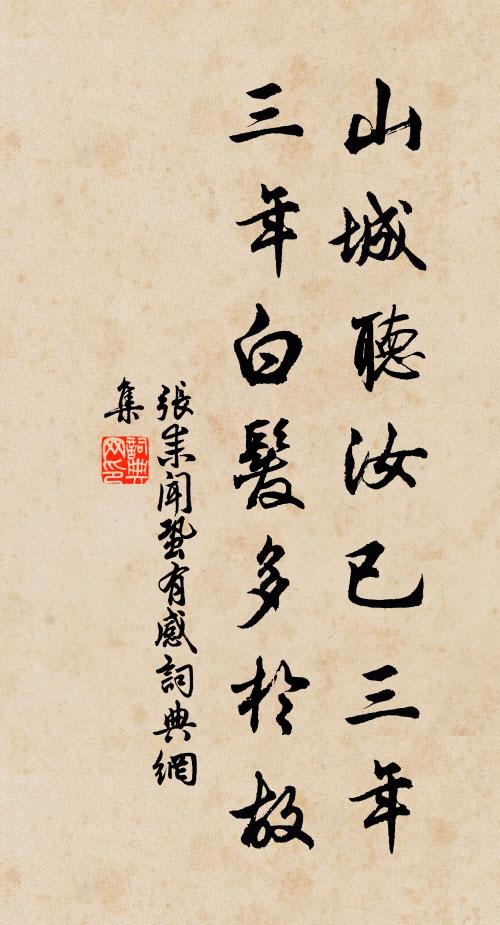 山城聽汝已三年
三年白髮多於故
張耒聞蛩有感詞典網
集
詞典
网印